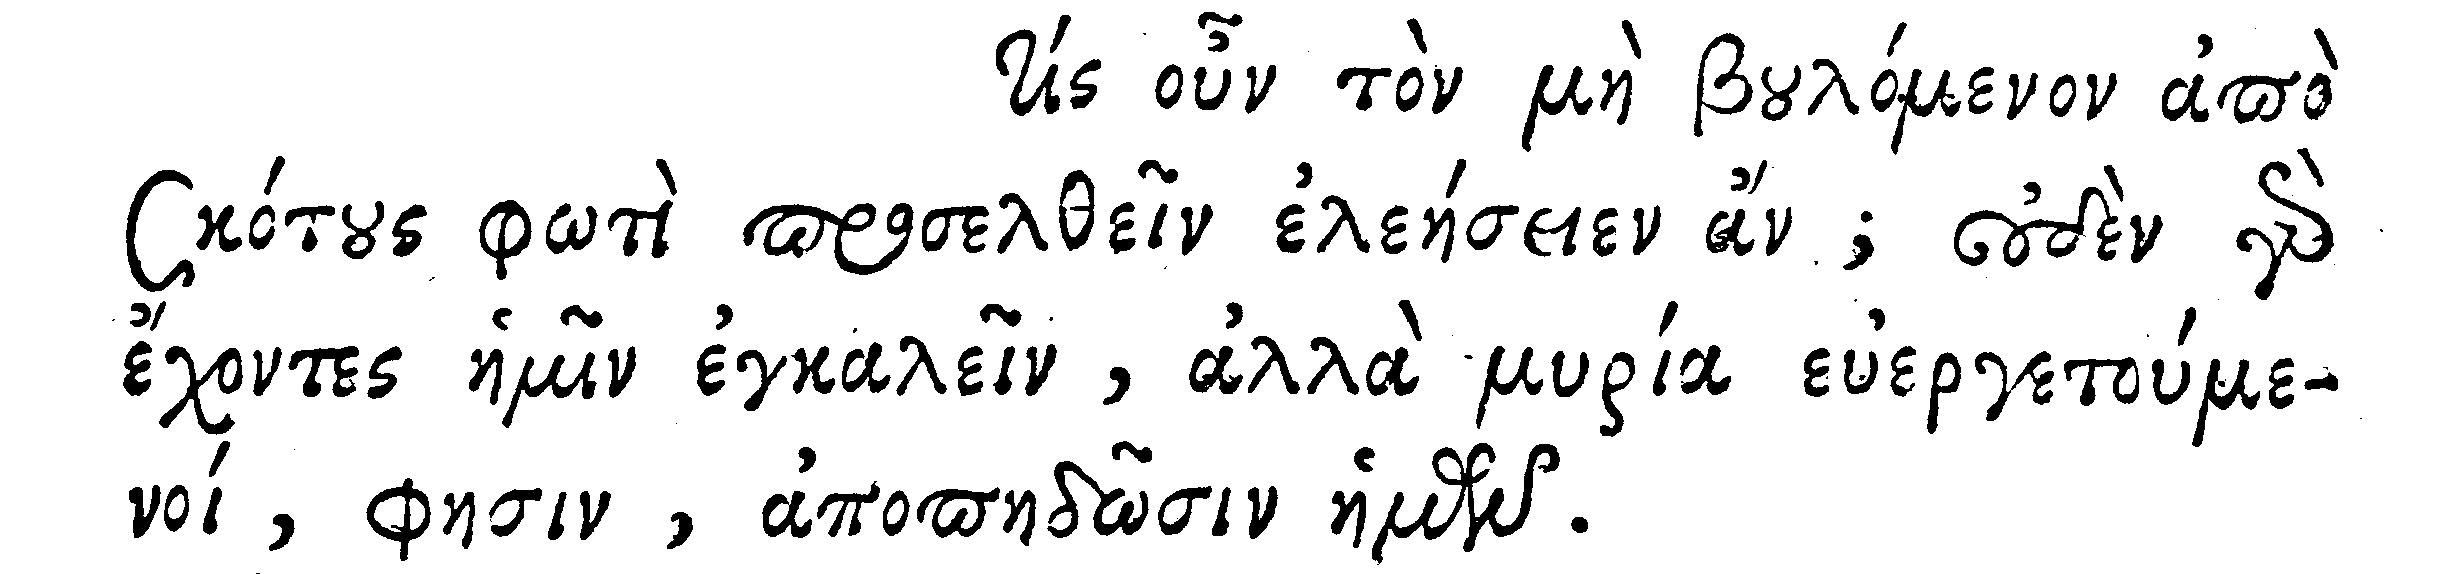 Τίς οὖν τὸν μὴ βουλόμενον ἀπὸ
σκότους φωτὶ προσελθεῖν ἐλεήσειεν ἄν ; οὐδὲν γὰρ
ἔχοντες ἡμῖν ἐγκαλεῖν , ἀλλὰ μυρία εὐεργετούμε-
νοί , φησιν , ἀποπηδῶσιν ἡμῶν .